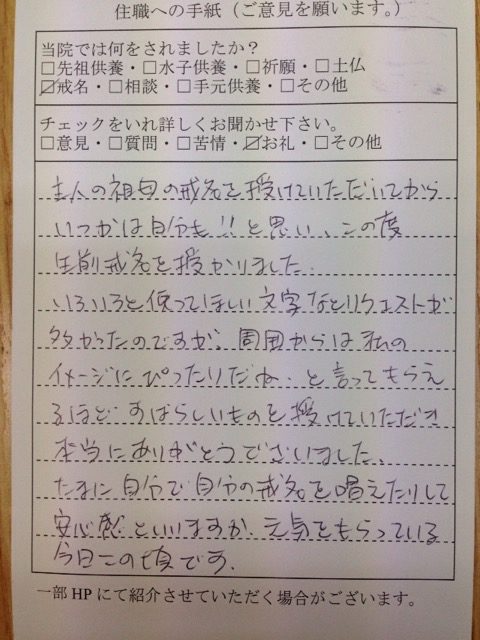 住職への手紙（ご意見を願います。）
当院では何をされましたか？
□先祖供養・□水子供養・□祈願・□土仏
☑戒名・□相談・□手元供養・□その他
チェックをいれ詳しくお聞かせ下さい。
□意見・□質問・□苦情・☑お礼・□その他
主人の祖母の戒名を授けていただいてから
いつかは自分も!!と思い、この度
生前戒名を授かりました.
いろいろと使ってほしい文字などリクエストが
多かったのですが、周囲からは私の
イメージにぴったりだね.と言ってもらえ
るほど.すばらしいものを授けていただき
本当にありがとうございました、
たまに自分で自分の戒名を唱えたりして
安心感といいますか、元気をもらっている
今日この頃です.
一部HPにて紹介させていただく場合がございます。